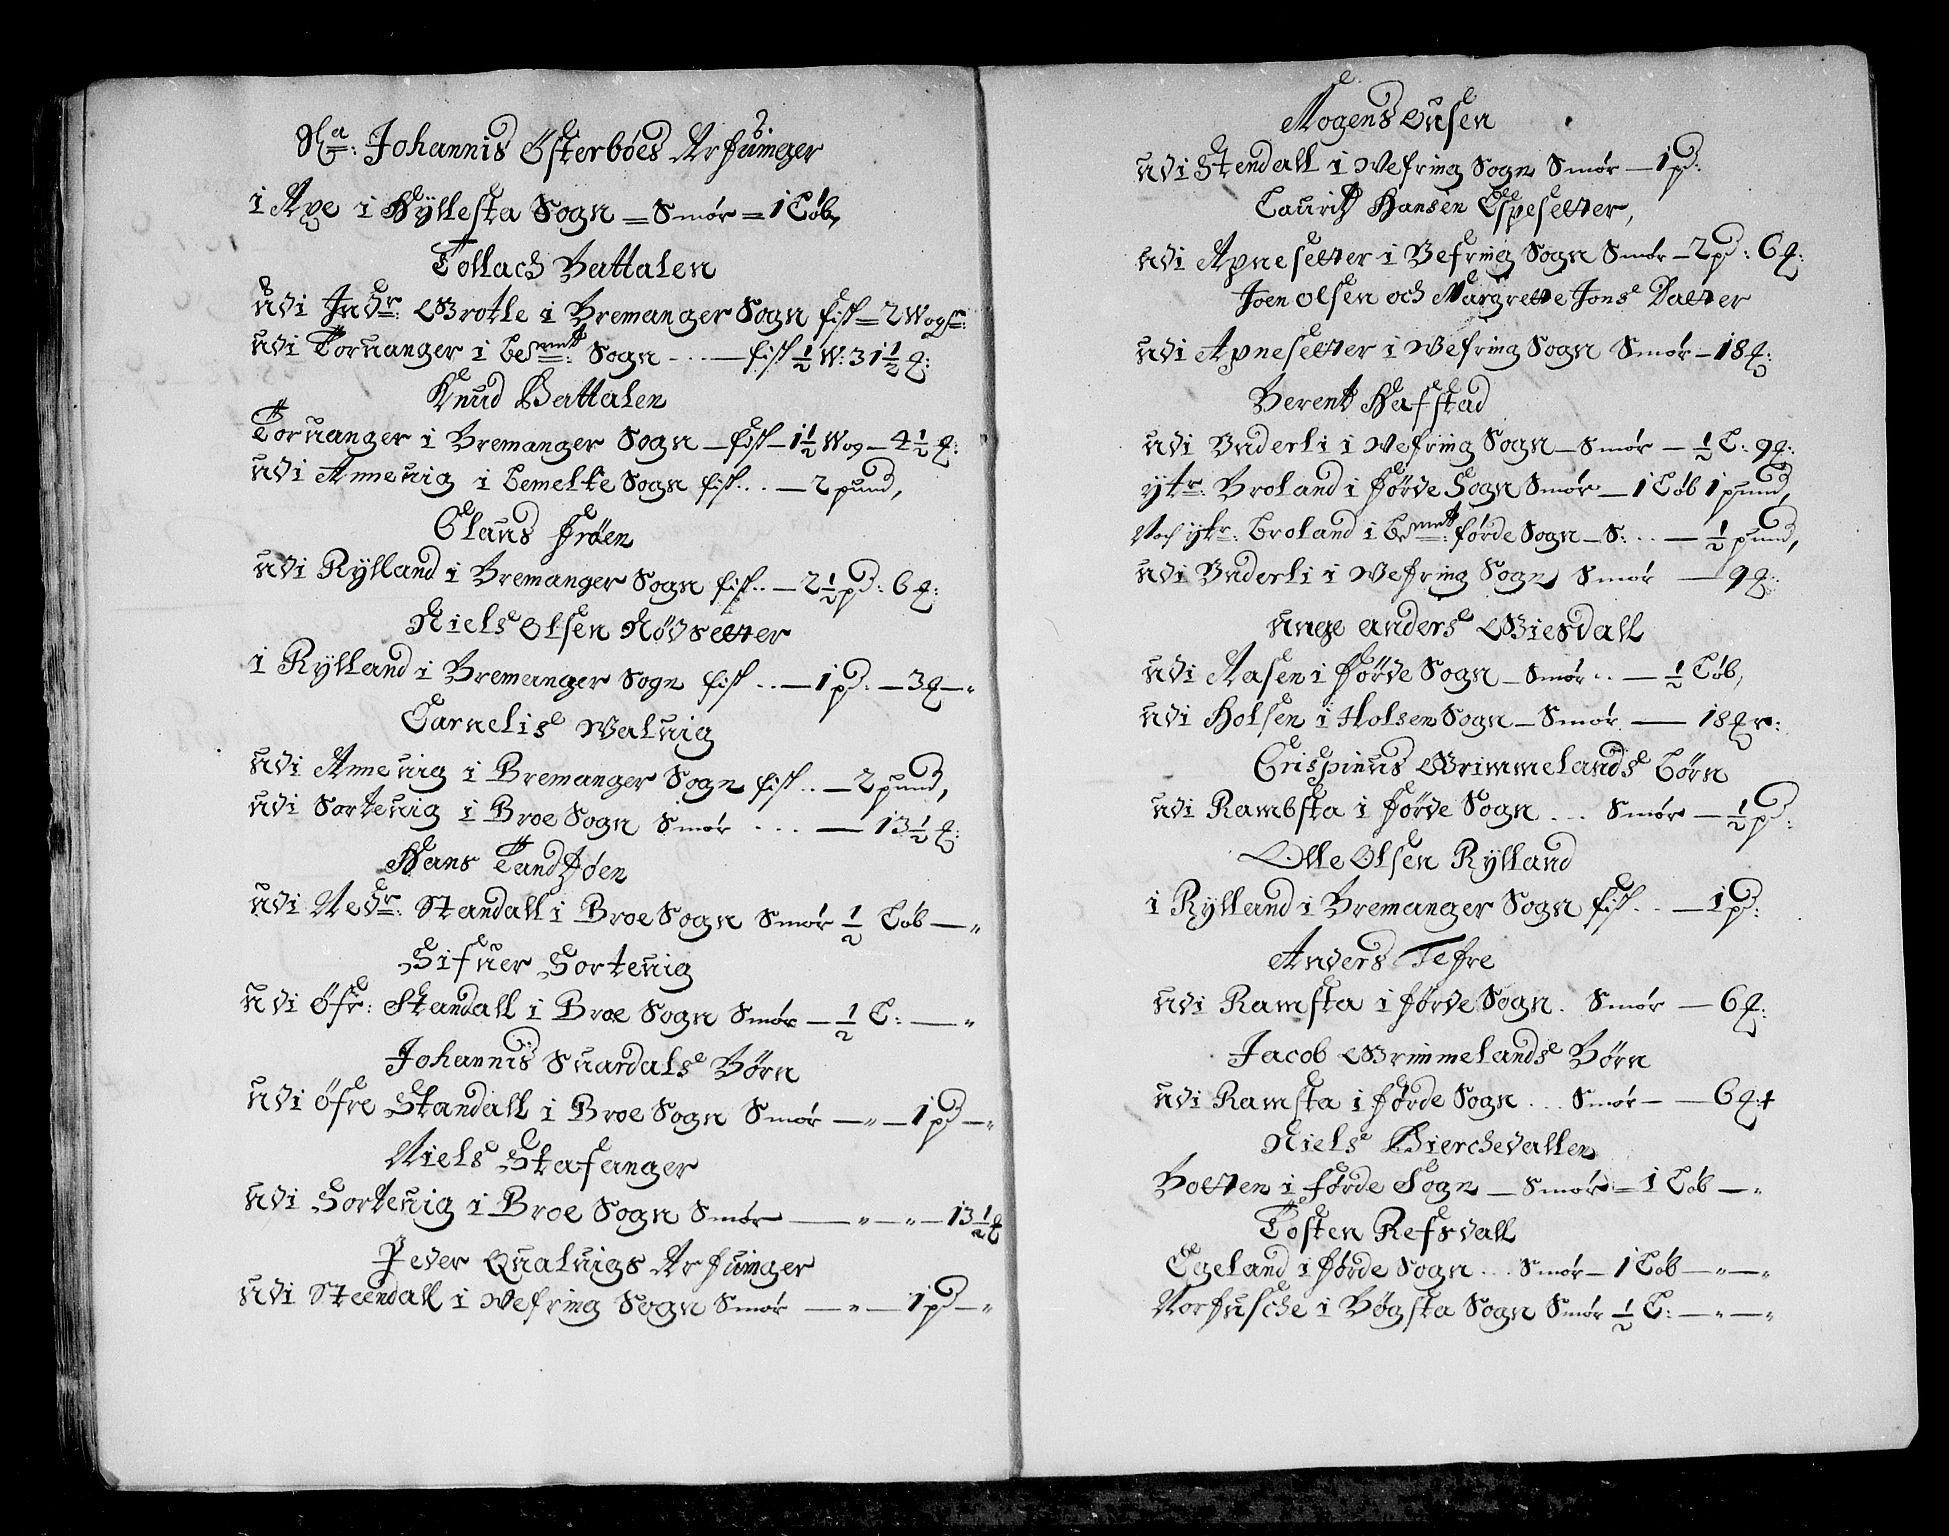 Sl: Johannis Østerbøes Arfuinger
i Ape i Hyllesta Sogn = Smør = 1 Løb,
Tollach Battalen
udi Indr: Grotle i Bremanger Sogn fisk = 2 Wogr:
udi Toruanger i bemt: Sogn - . . - fisk ½ W: 31½ ℔:
Knud Battalen
Toruanger i Bremanger Sogn - fisk - 1½ Wog - 4½ ℔:
udi Anneuig i bemelte Sogn fisk . . - 2 pund,
Claus Frøen
udi Rylland i Bremanger Sogn fisk . . - 2½ pd: 6 ℔:
Niels Olsen Nødsetter
i Rylland i Bremanger Sogn fisk . . - 1 pd: - 3 ℔ - "
Carnelis Waluig
udi Anneuig i Bremanger Sogn fisk . . - 2 pund,
udi Sorteuig i Broe Sogn Smør . . . - 13½ ℔:
Hans Tandzøen
udi Nedr: Standall i Broe Sogn Smør ½ Løb - "
Sifuer Sorteuig
udi Øfr: Standall i Broe Sogn Smør - ½ L: - "
Johannis Suardals Børn
udi Øfre Standall i Broe Sogn Smør - " - 1 pd - "
Niels Stafanger
udi Sorteuig i Broe Sogn Smør - " - " - 13½ ℔
Peder Qualuigs Arfuinger
udi Steendall i Wefring Sogn Smør - " - 1 pd - "
Mogens Ousen
udi Stendall i Wefring Sogn Smør - 1 pd:
Lauritz Hansen Espesetter,
udi Apnesetter i Vefring Sogn Smør - 2 pd: 6 ℔:
Joen Olsen och Margrette Jons Datter
udi Apnesetter i Wefring Sogn Smør - 18 ℔:
Berent Hafstad
udi Underli i Wefring Sogn - Smør - ½ L: 9 ℔:
ytr: Broland i Førde Sogn Smør - 1 Løb 1 pund,
Noch ytr: Broland i bemt: Førde Sogn - S: . . - ½ pund,
udi Underli i Wefring Sogn Smør - 9 ℔:
unge Anders Giesdall
udi Aasen i Førde Sogn - Smør . . - ½ Løb,
udi Holsen i Holsen Sogn - Smør - 18 ℔r:
Crispinus Grimmelands Børn
udi Rambsta i Førde Sogn . . . Smør - ½ pd:
Olle Olsen Rylland
i Rylland i Bremanger Sogn fisk . . - 1 pd:
Anders Tefre
udi Ramsta i Førde Sogn . Smør - 6 ℔:
Jacob Grimmelands Børn
udi Ramsta i Førde Sogn . . . Smør - - 6 ℔:
Niels Bierchevallen
Botten i Førde Sogn - Smør = 1 Løb - "
Tosten Refsdall
Egeland i Førde Sogn . . . Smør - 1 Løb - " - "
Norfusche i Bøgsta Sogn Smør ½ L: - " - "